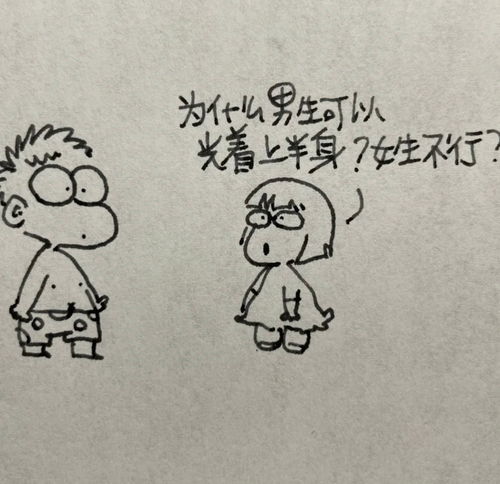 为什么男生可以
光着上半身?女生不行?